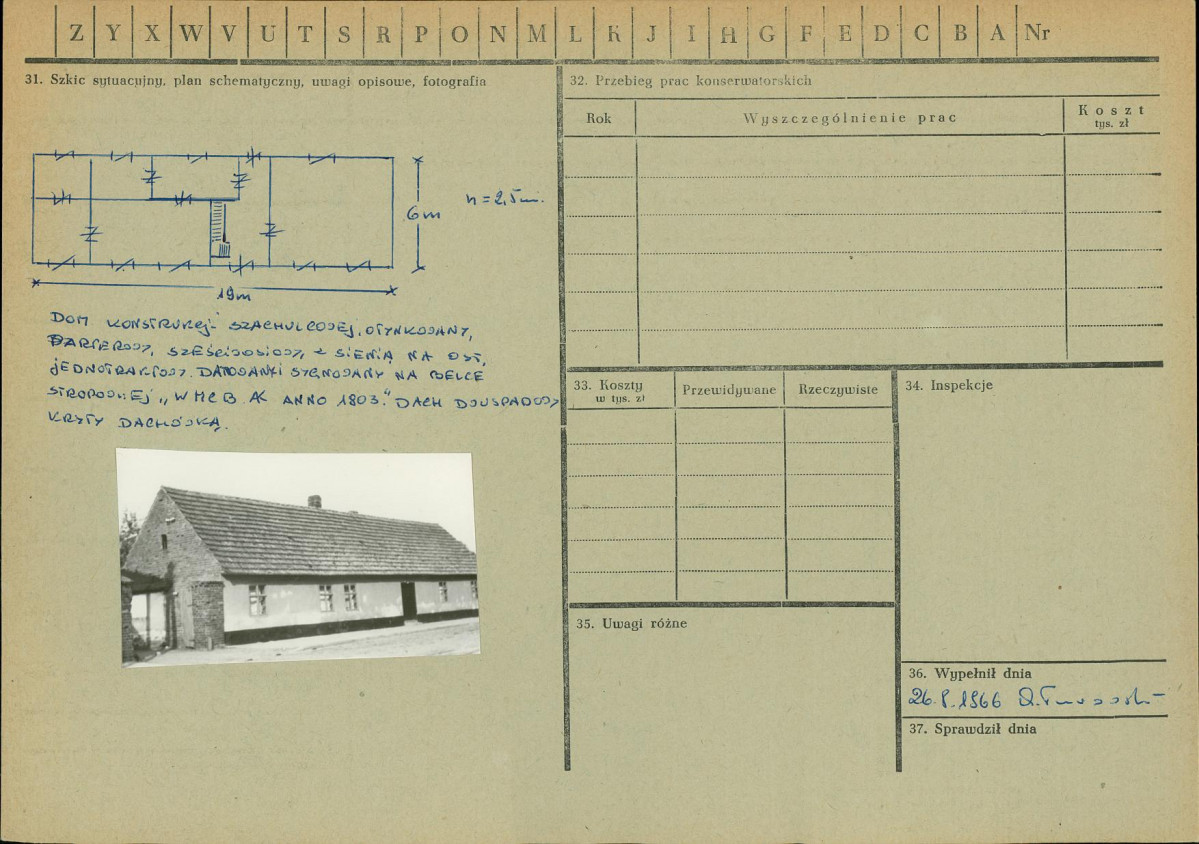 Z Y X W V U T S R P O N M L K J I H G F E D C B A Nr
31. Szkic sytuacyjny, plan schematyczny, uwagi opisowe, fotografia
6m
h = 2,5m.
19m
DOM KONSTRUKCJI SZACHULCOWEJ, OTYNKOWANY,
PARTEROWY, SZEŚCIOOSIOWY, Z SIENIĄ NA OSI,
JEDNOTRAKTOWY. DATOWANY I SYGNOWANY NA BELCE
STROPOWEJ „W MCB AK ANNO 1803." DACH DWUSPADOWY
KRYTY DACHÓWKĄ.
32. Przebieg prac konserwatorskich
Rok Wyszczególnienie prac Koszt
tys. zł
33. Koszty
w tys. zł
Przewidywane Rzeczywiste
34. Inspekcje
35. Uwagi różne
36. Wypełnił dnia
1966
37. Sprawdził dnia